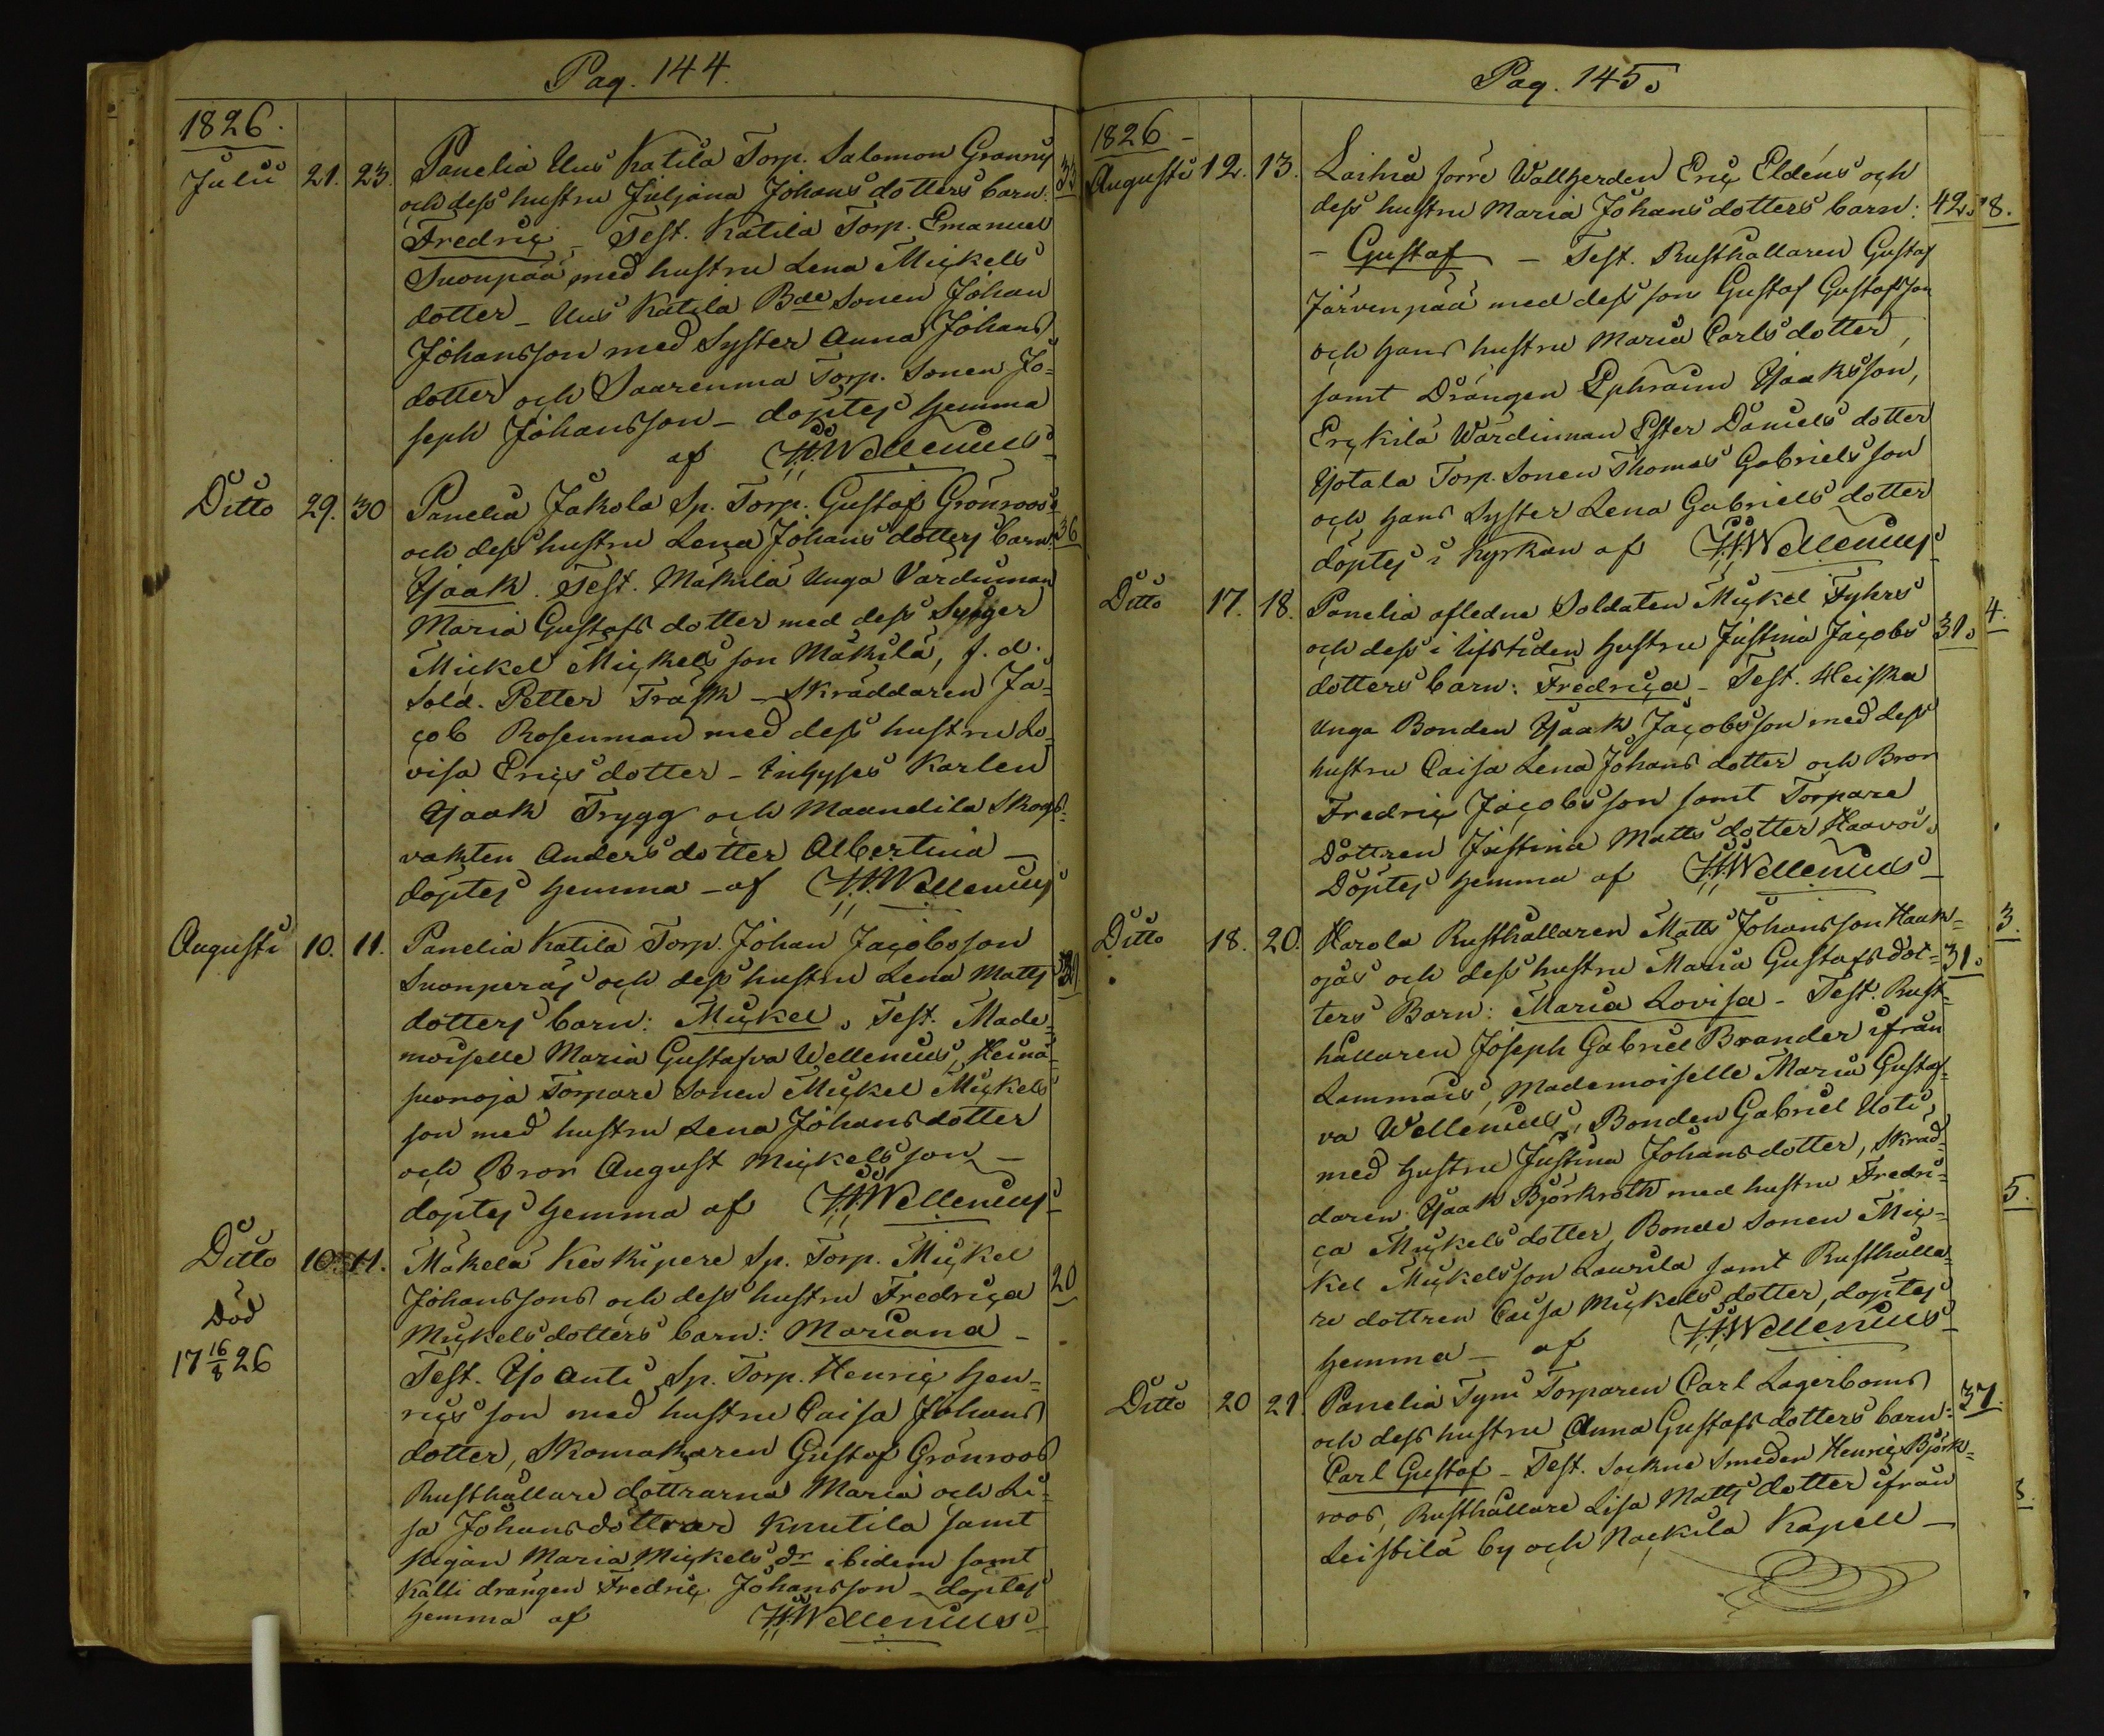 Pag. 144.
1826.
Julii 21. 23. Panelia Uus Katila Torp. Salomon Granrys 33
och dess hustru Juljana Johansdotters barn:
Fredric – Test. Katila Torp. Emanuel
Suonpää med hustru Lena Mickels
dotter – Uus Katila Bde Sonen Johan
Johansson med Syster Anna Johans
dotter och Saarenma Torp. Sonen Jo=
seph Johansson – döptes hemma
af H.Wellenius
Ditto 29. 30 Panelia Jakola Sp. Torp. Gustaf Grönroos
och dess hustru Lena Johans dotters barn: 36
Isaak. Test. Mäkilä Unga Värdinnan
Maria Gustafs dotter med dess Svåger
Mickel Mickelsson Mäkilä, f. d.
Sold. Petter Träsk – Skräddaren Ja=
cob Rosenman med dess hustru Lo=
visa Ericsdotter – Inhyses Karlen
Isaak Trygg och Maandila Skogs=
vakten Andersdotter Albertina –
döptes hemma – af H.Wellenius
Augusti 10. 11. Panelia Katila Torp. Johan Jacobsson
Suonperäs och dess hustru Lena Matts
dotters barn: Mickel. Test. Made=
moiselle Maria Gustafva Wellenius, Heinä=
suonoja Torpare Sonen Mickel Mickels
son med hustru Lena Johansdotter
och Bror August Mickelsson –
döptes hemma af H.Wellenius
Ditto 10. 11. Mäkelä Keskipere Sp. Torp. Mickel
Johanssons och dess hustru Fredrica 20
Död Mickelsdotters barn: Mariana –
17 16/8 26 Test. Iso Anti Sp. Torp. Henric Hen=
ricsson med hustru Caisa Johans
dotter, Skomakaren Gustaf Grönroos
Rusthållare döttrarna Maria och Li=
sa Johansdöttrar Knutila samt
pigan Maria Mickels dr ibidem samt
Källi drängen Fredric Johansson – döptes
hemma af H.Wellenius
Pag. 145.
1826 –
Augusti 12. 13. Laihia förre Wallherden Eric Eldéns och
dess hustru Maria Johansdotters barn: 42. 8.
– Gustaf – Test. Rusthållaren Gustaf
Järvenpää med dess son Gustaf Gustafsson
och hans hustru Maria Carlsdotter,
samt Drängen Ephraim Isaksson,
Erckilä Wärdinnan Ester Daniels dotter
Isotala Torp. Sonen Thomas Gabrielsson
och hans Syster Lena Gabriels dotter
döptes i kyrkan af H.Wellenius
Ditto 17. 18. Panelia afledne Soldaten Mickel Fyhrs 4.
och dess i lifstiden hustru Justina Jacobs 31.
dotters barn: Fredrica – Test. Heiska
Unga Bonden Isaak Jacobsson med dess
hustru Caisa Lena Johans dotter och Bror
Fredric Jacobsson samt Torpare
Dottren Justina Matts dotter Haavoi.
Döptes hemma af H.Wellenius
Ditto 18. 20. Harola Rusthållaren Matts Johansson Haak= 3.
ojas och dess hustru Maria Gustafsdot= 31.
ters Barn: Maria Lovisa – Test. Rust=
hållaren Joseph Gabriel Brander ifrån
Lammais, Mademoiselle Maria Gustaf=
va Wellenius, Bonden Gabriel Uoti,
med hustru Justina Johansdotter, Skräd=
daren Isaak Björkroth med hustru Fredri= 5.
ca Mickels dotter, Bonde Sonen Mic=
kel Mickelsson Laurila samt Rusthålla=
re dottren Caisa Mickels dotter, döptes
hemma – af H.Wellenius
Ditto 20 21. Panelia Tyni Torparen Carl Lagerboms
och dess hustru Anna Gustafsdotters barn: 37.
Carl Gustaf – Test. Sockne Smeden Henric Björk=
roos, Rusthållare Lisa Matts dotter ifrån
Leistilä by och Nackila Kapell –